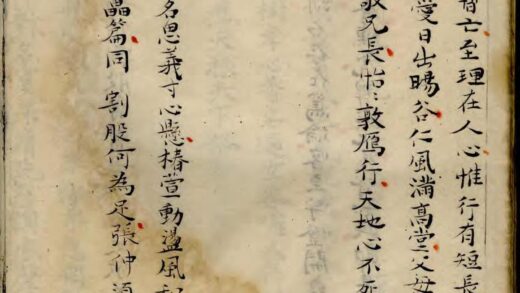 亡至理在人心惟行有短長
愛日出暘谷仁風滿高堂父母
敬兄長怡〻敦鴈行天地心不死
名思義寸心懸椿萱動盪風
篇同割股何為足張仲